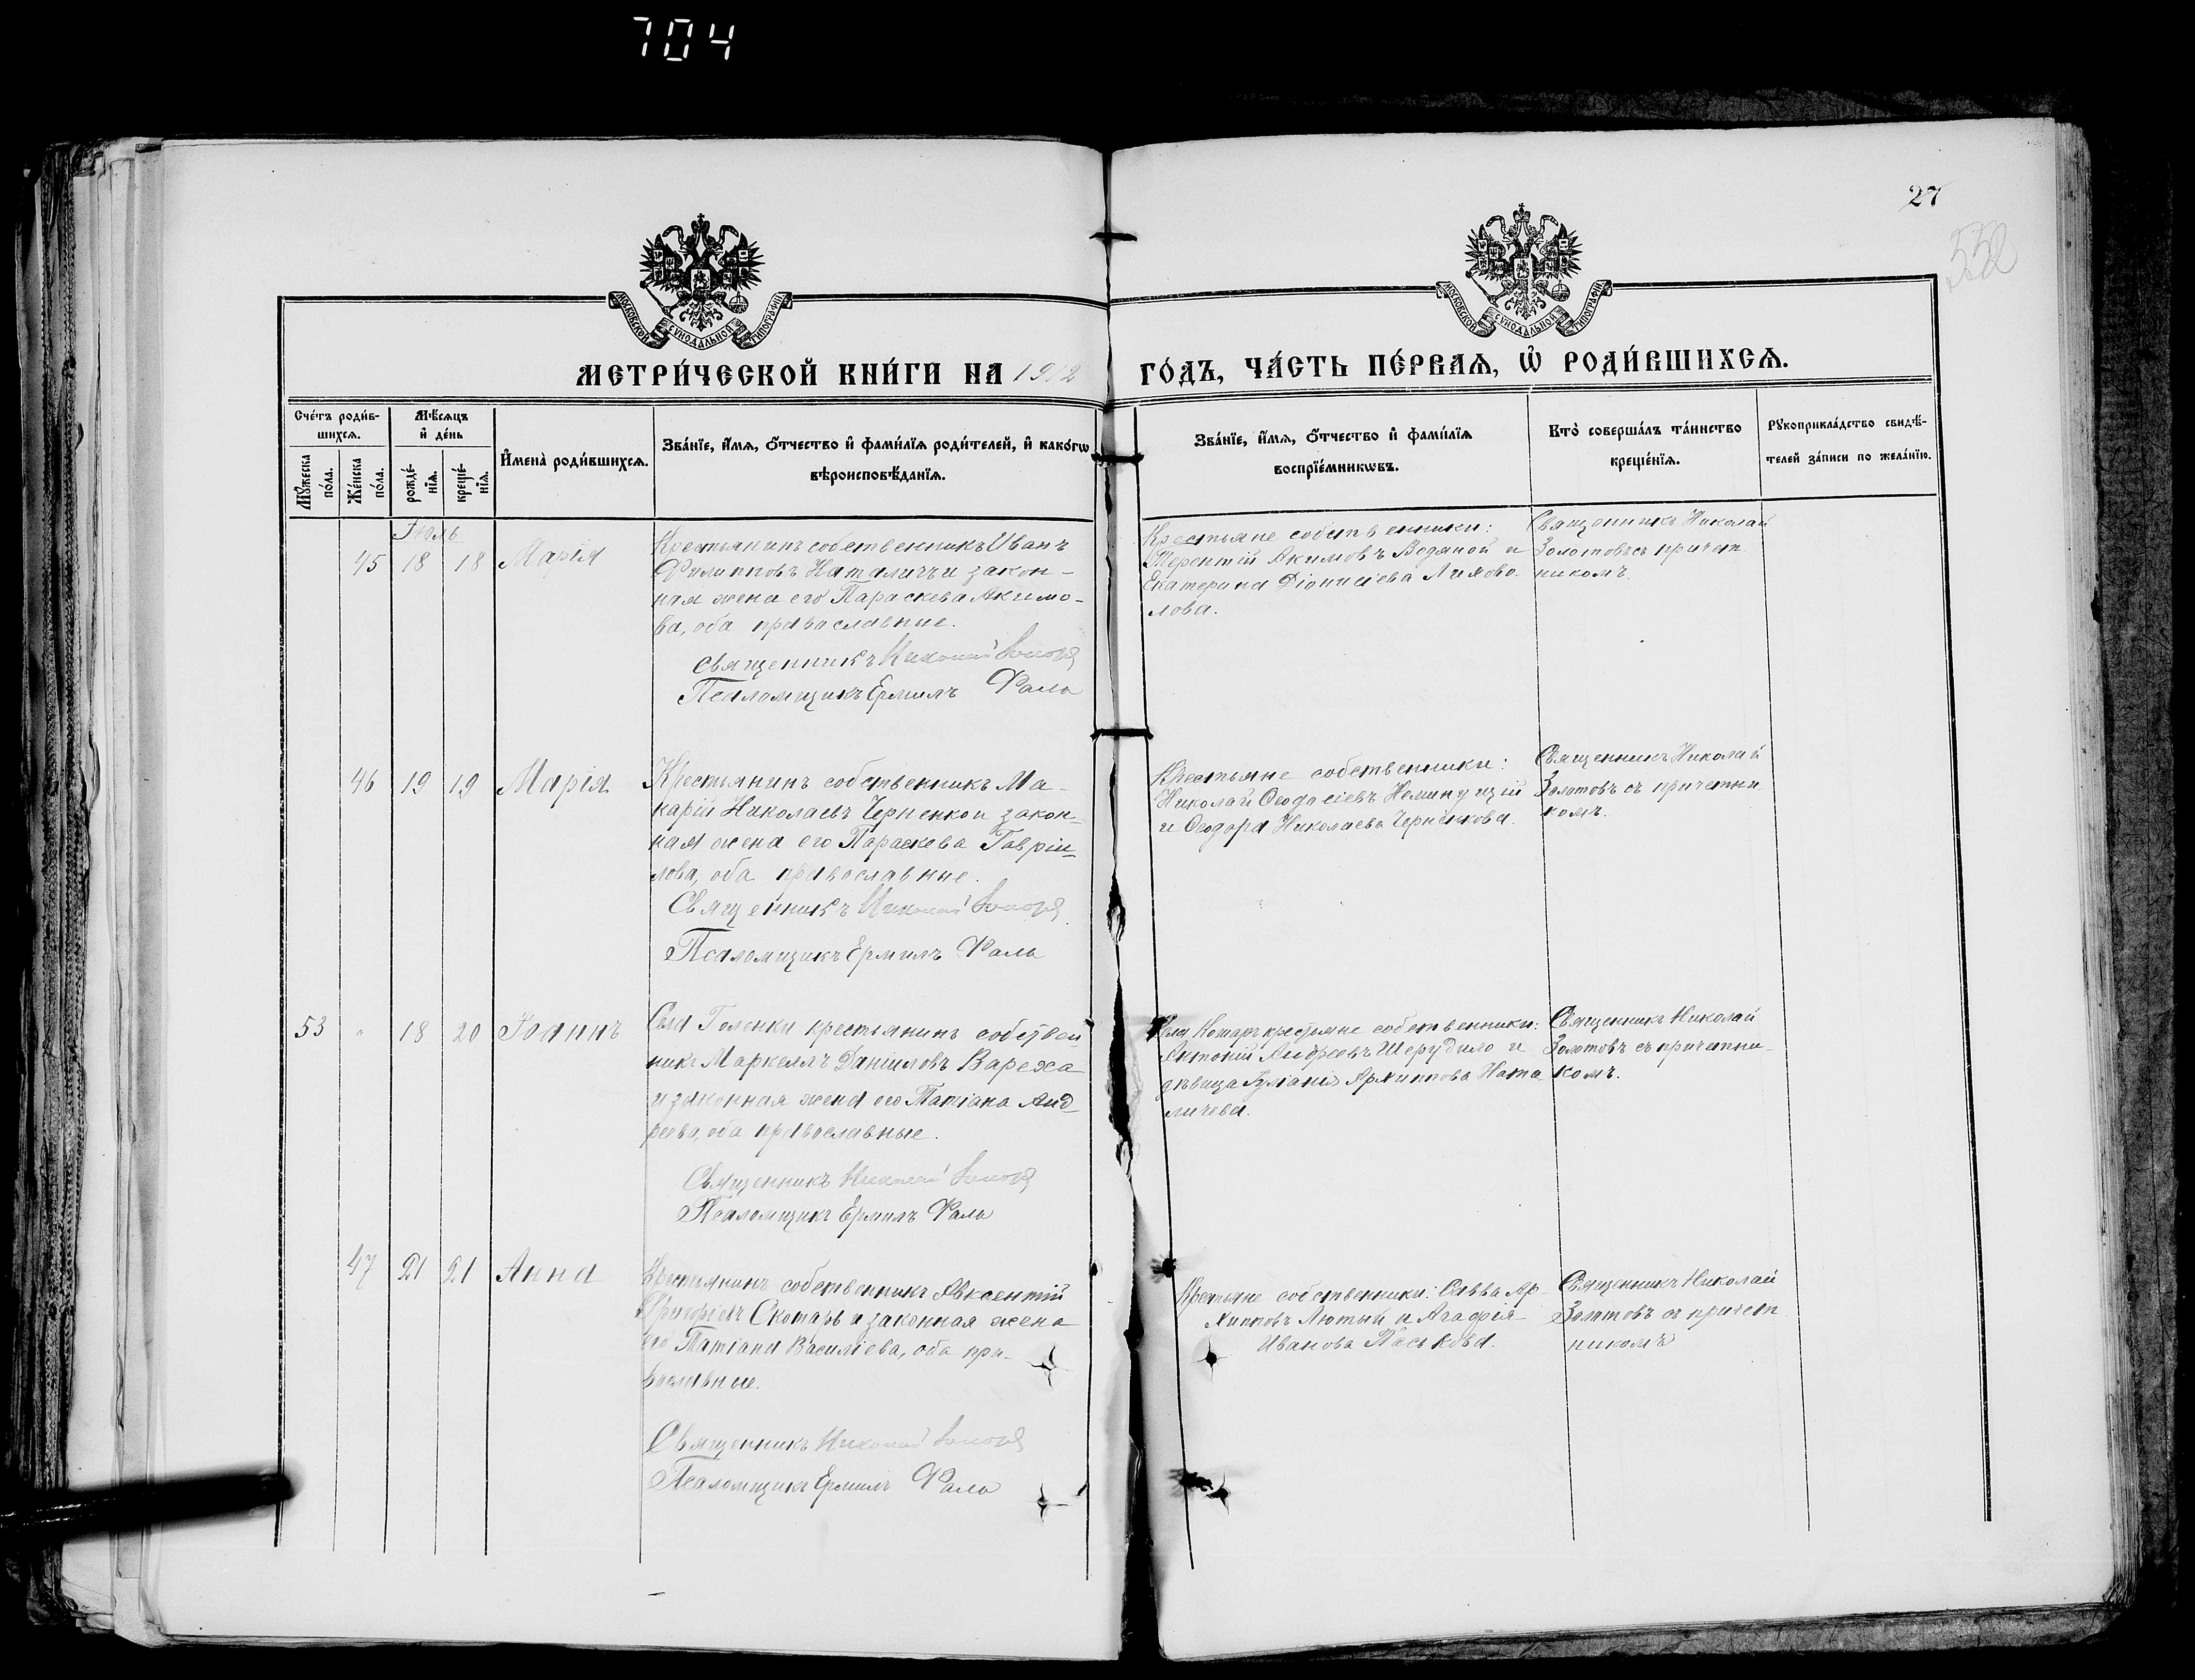 704
27
552
МОСКОВСКОЙ СѴНОДАЛЬНОЙ ТИПОГРАФІИ
МОСКОВСКОЙ СѴНОДАЛЬНОЙ ТИПОГРАФІИ
МЕТРИ́ЧЕСКОЙ КНИ́ГИ НА 1912 ГО́ДЪ, ЧА́СТЬ ПЕ́РВАЯ, Ѡ҆ РОДИ́ВШИХСѦ.
Сче́тъ роди́в-
шихсѧ.
Мꙋ́жеска по́ла.
Же́нска по́ла.
Мѣ́сѧцъ
и҆ де́нь
рожде́-
нїѧ.
креще́-
нїѧ.
И҆мена̀ роди́вшихсѧ.
Зва́нїе, и҆́мѧ, ѻ҆́тчество и҆ фами́лїѧ роди́телей, и҆ како́гѡ
вѣроисповѣ́данїѧ.
Зва́нїе, и҆́мѧ, ѻ҆́тчество и҆ фами́лїѧ
воспрїе́мникѡвъ.
Кто̀ соверша́лъ та́инство
креще́нїѧ.
Рꙋкоприкла́дство свидѣ́-
телей за́писи по жела́нїю.
Іюль
45 18 18 Марія
Крестьянинъ собственникъ Иванъ
Филипповъ Наталичъ и закон-
ная жена его Параскева Акимо-
ва, оба православные.
Священникъ Николай Золотовъ
Псаломщикъ Ермилъ Фаль
Крестьяне собственники:
Терентій Акимовъ Водяной и
Екатерина Діонисіева Лихово-
лова.
Священникъ Николай
Золотовъ съ причет
никомъ.
46 19 19 Марія
Крестьянинъ собственникъ Ма-
карій Николаевъ Черненко и закон-
ная жена его Параскева Гаврiи-
лова, оба православные.
Священникъ Николай Золотовъ
Псаломщикъ Ермилъ Фаль
Крестьяне собственники:
Николай Ѳеодосіевъ Неминущій
и Ѳеодора Николаева Черненкова.
Священникъ Николай
Золотовъ съ причетни
комъ.
53 " 18 20 Іоаннъ
Села Голенки крестьянинъ собствен
никъ Маркеллъ Даніиловъ Вареха
и законная жена его Татіана Анд-
реева, оба православные.
Священникъ Николай Золотовъ
Псаломщикъ Ермилъ Фаль
Села Кошаръ крестьяне собственники:
Антоній Андреевъ Шерудило и
дѣвица Іуліанія Архиппова Ната
личева.
Священникъ Николай
Золотовъ съ причетни-
комъ.
47 21 21 Анна
Крестьянинъ собственникъ Авксентій
Григорьевъ Скотарь и законная жена
его Татіана Василіева, оба пра-
вославные.
Священникъ Николай Золотовъ
Псаломщикъ Ермилъ Фаль
Крестьяне собственники: Савва Ар-
хипповъ Лютый и Агафія
Иванова Паськова.
Священникъ Николай
Золотовъ съ причет
никомъ